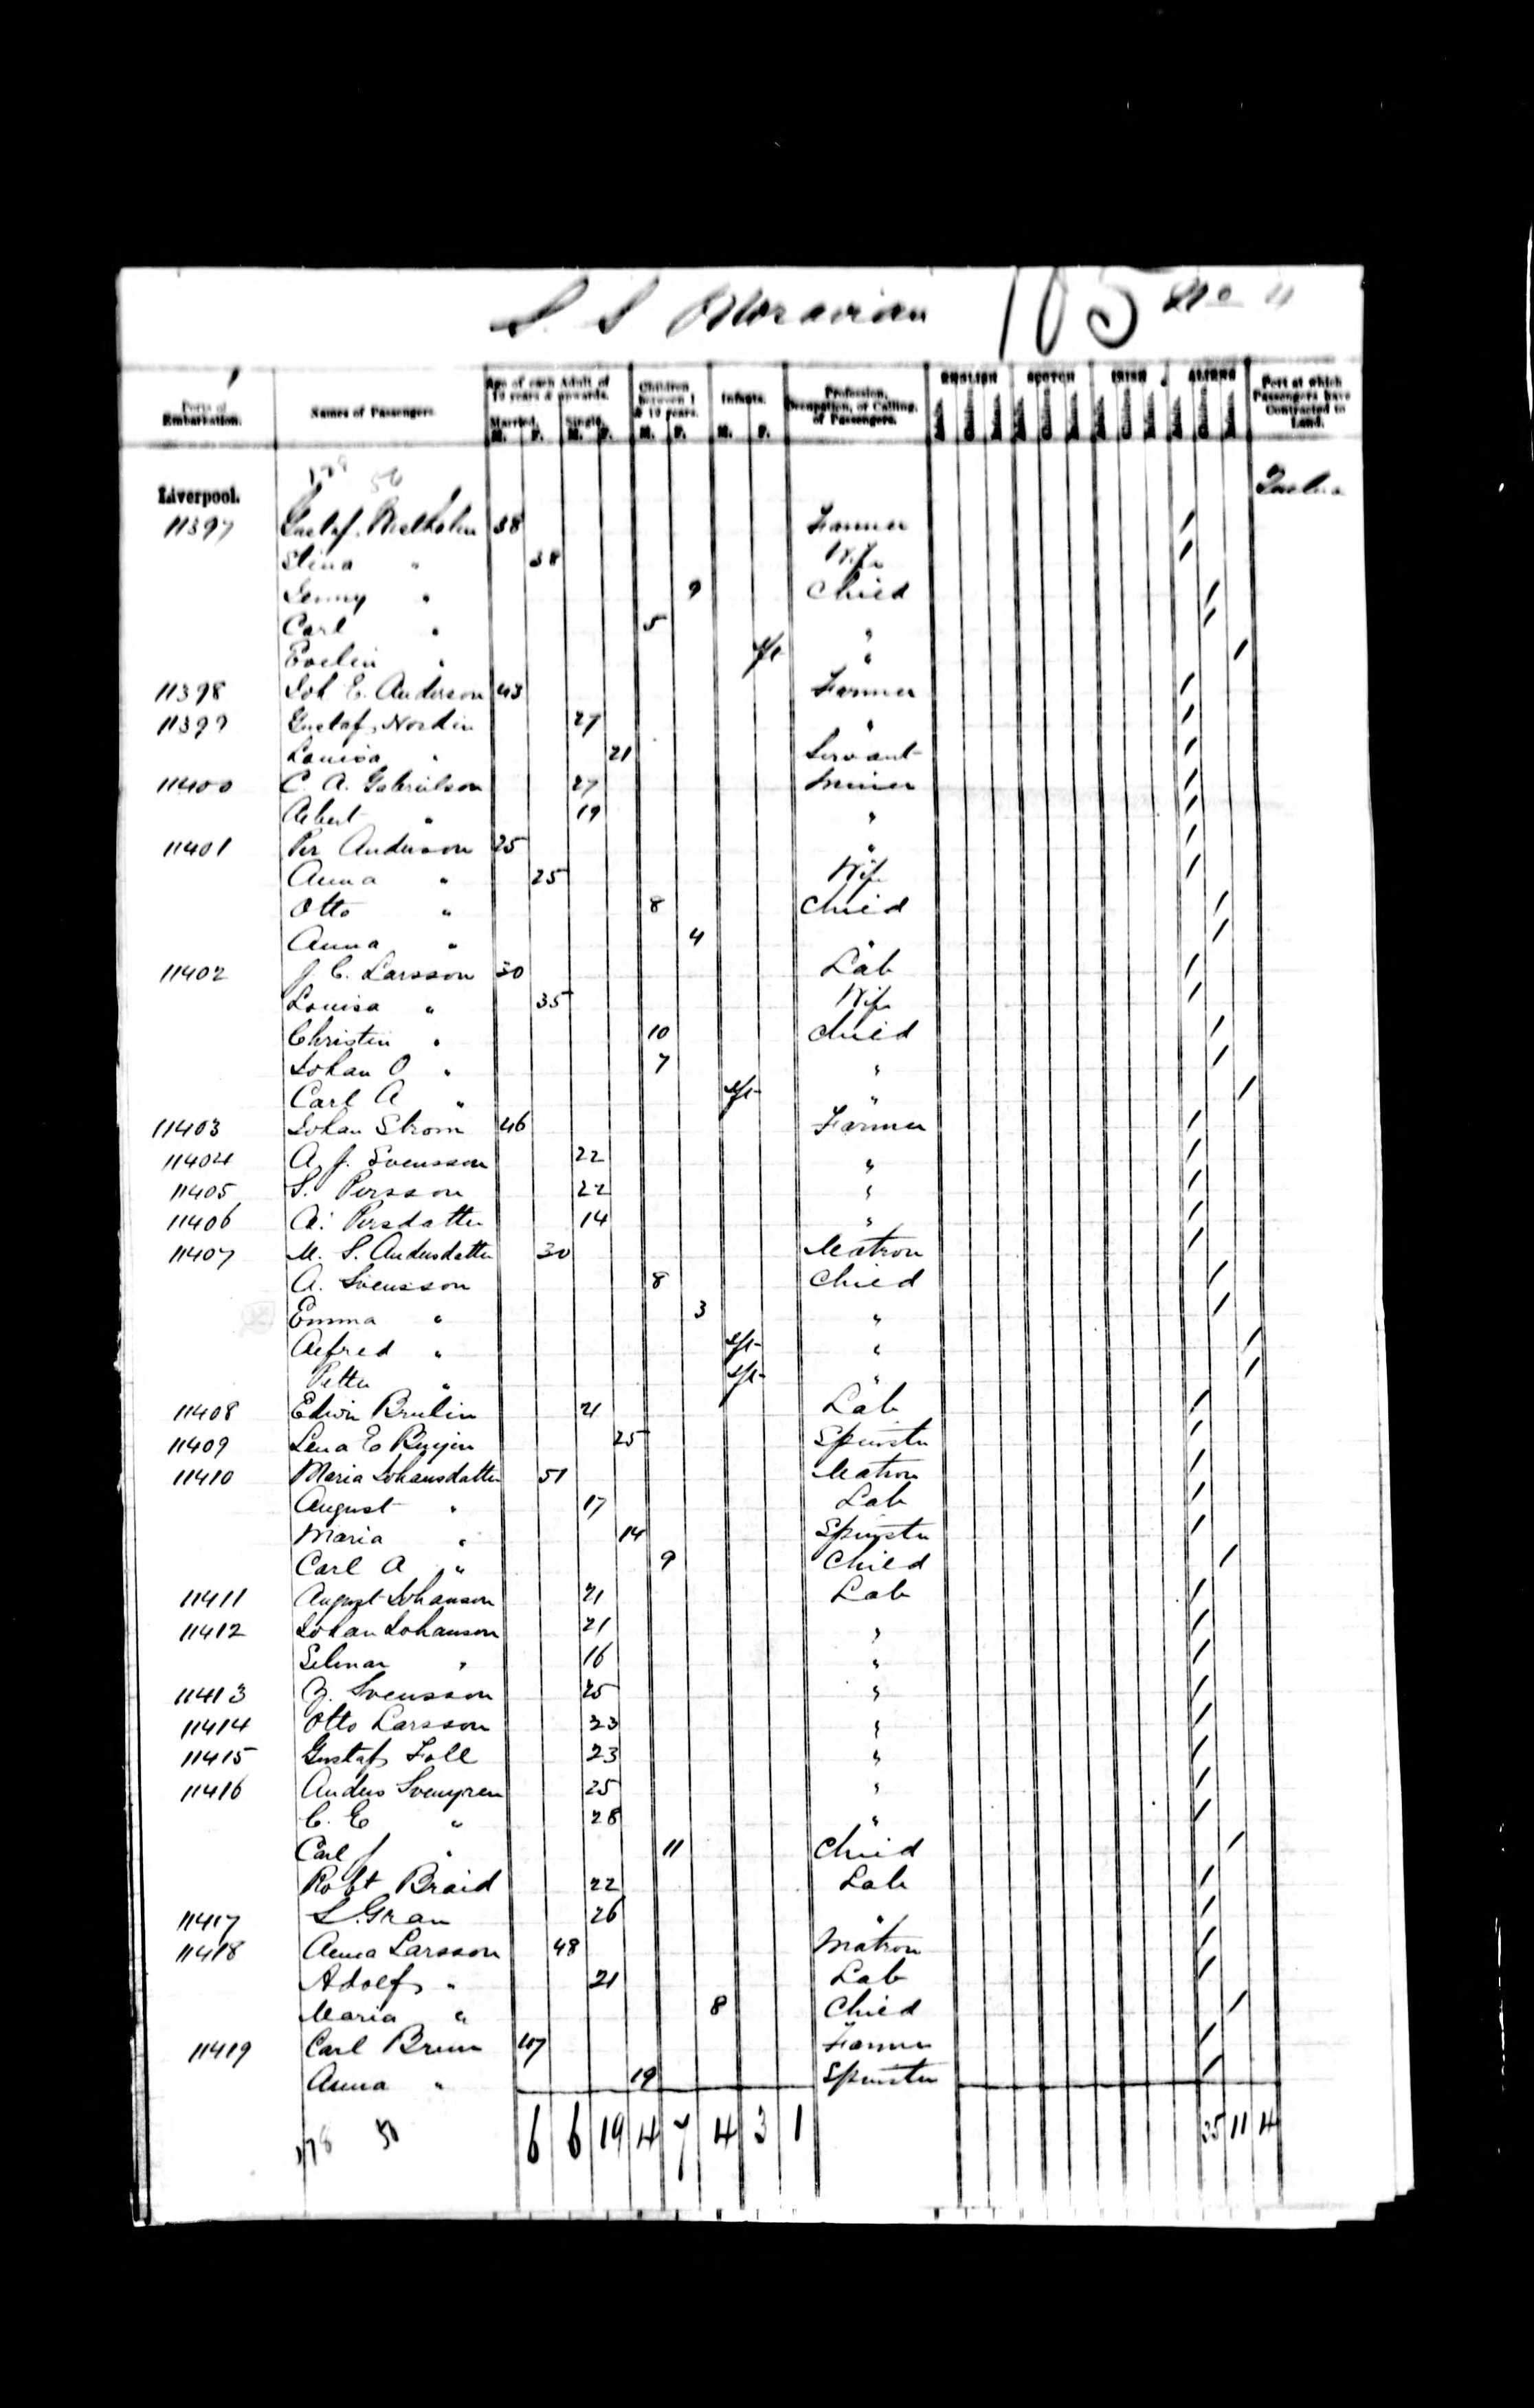 S. S Moravian 105 No 4
Ports of Embarkation. Names of Passengers. Age of each Adult of 10 years & upwards. Children between 1 & 10 years. Infants. Profession, Occupation, or Calling, of Passengers. ENGLISH SCOTCH IRISH ALIENS Port at which Passengers have Contracted to Land.
Married. Single.
M. F. M. F. M. F. M. F.
Liverpool.
11397 Gustaf 38 Farmer /
Stina " 38 Wife /
Jenny " 9 Child /
Carl " 5 " /
Evelin " "  /
11398 Joh E. Anderson 43 Farmer /
11399 Gustaf Nordin 27 " /
Louisa " 21 Servant /
11400 C. A. Gabrielson 27 Miner /
Albert " 19 " /
11401 Per Anderson 25 " /
Anna " 25 Wife /
Otto " 8 Child /
Anna " 4 " /
11402 J. C. Larsson 30 Lab /
Louisa " 35 Wife /
Christin " 10 Child /
Johan O " 7 " /
Carl A " " /
11403 Johan Strom 46 Farmer /
11404 A. J. Svensson 22 " /
11405 S. Persson 22 " /
11406 A. Persdatter 14 " /
11407 M. S. Andersdatter 30 Matron /
A. Svensson 8 Child /
Emma " 3 " /
Alfred " " /
Petter " " /
11408 Edwin Brulin 21 Lab /
11409 Lena E 25 Spinster /
11410 Maria Johansdatter 51 Matron /
August " 17 Lab /
Maria " 14 Spinster /
Carl A " 9 Child /
11411 August Johanson 21 Lab /
11412 Johan Johanson 21 " /
Selmar " 16 " /
11413 Svensson 25 " /
11414 Otto Larsson 23 " /
11415 Gustaf Foll 23 " /
11416 Anders Svengren 25 " /
C. E " 28 " /
Carl J " 11 Child /
Robt Braid 22 Lab /
11417 S. Gran 26 " /
11418 Anna Larsson 48 Matron /
Adolf " 21 Lab /
Maria " 8 Child /
11419 Carl Brun 47 Farmer /
Anna " 19 Spinster /
178 50 6 6 19 4 7 4 3 1 35 11 4